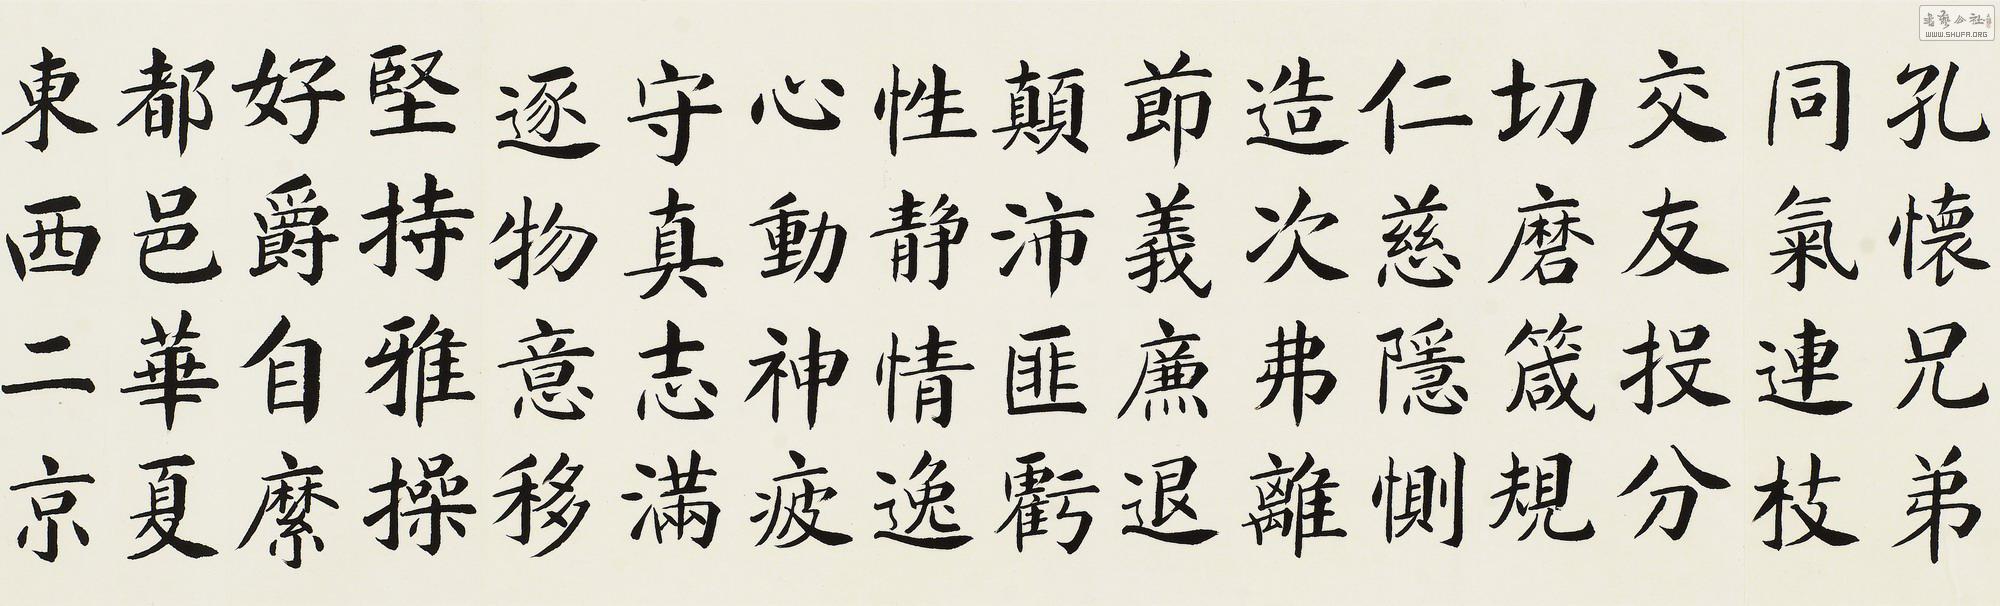 孔懷兄弟
同氣連枝
交友投分
切磨箴規
仁慈隱惻
造次弗離
節義廉退
顛沛匪虧
性静情逸
心動神疲
守真志滿
逐物意移
堅持雅操
好爵自縻
都邑華夏
東西二京
WWW.SHUFA.ORG